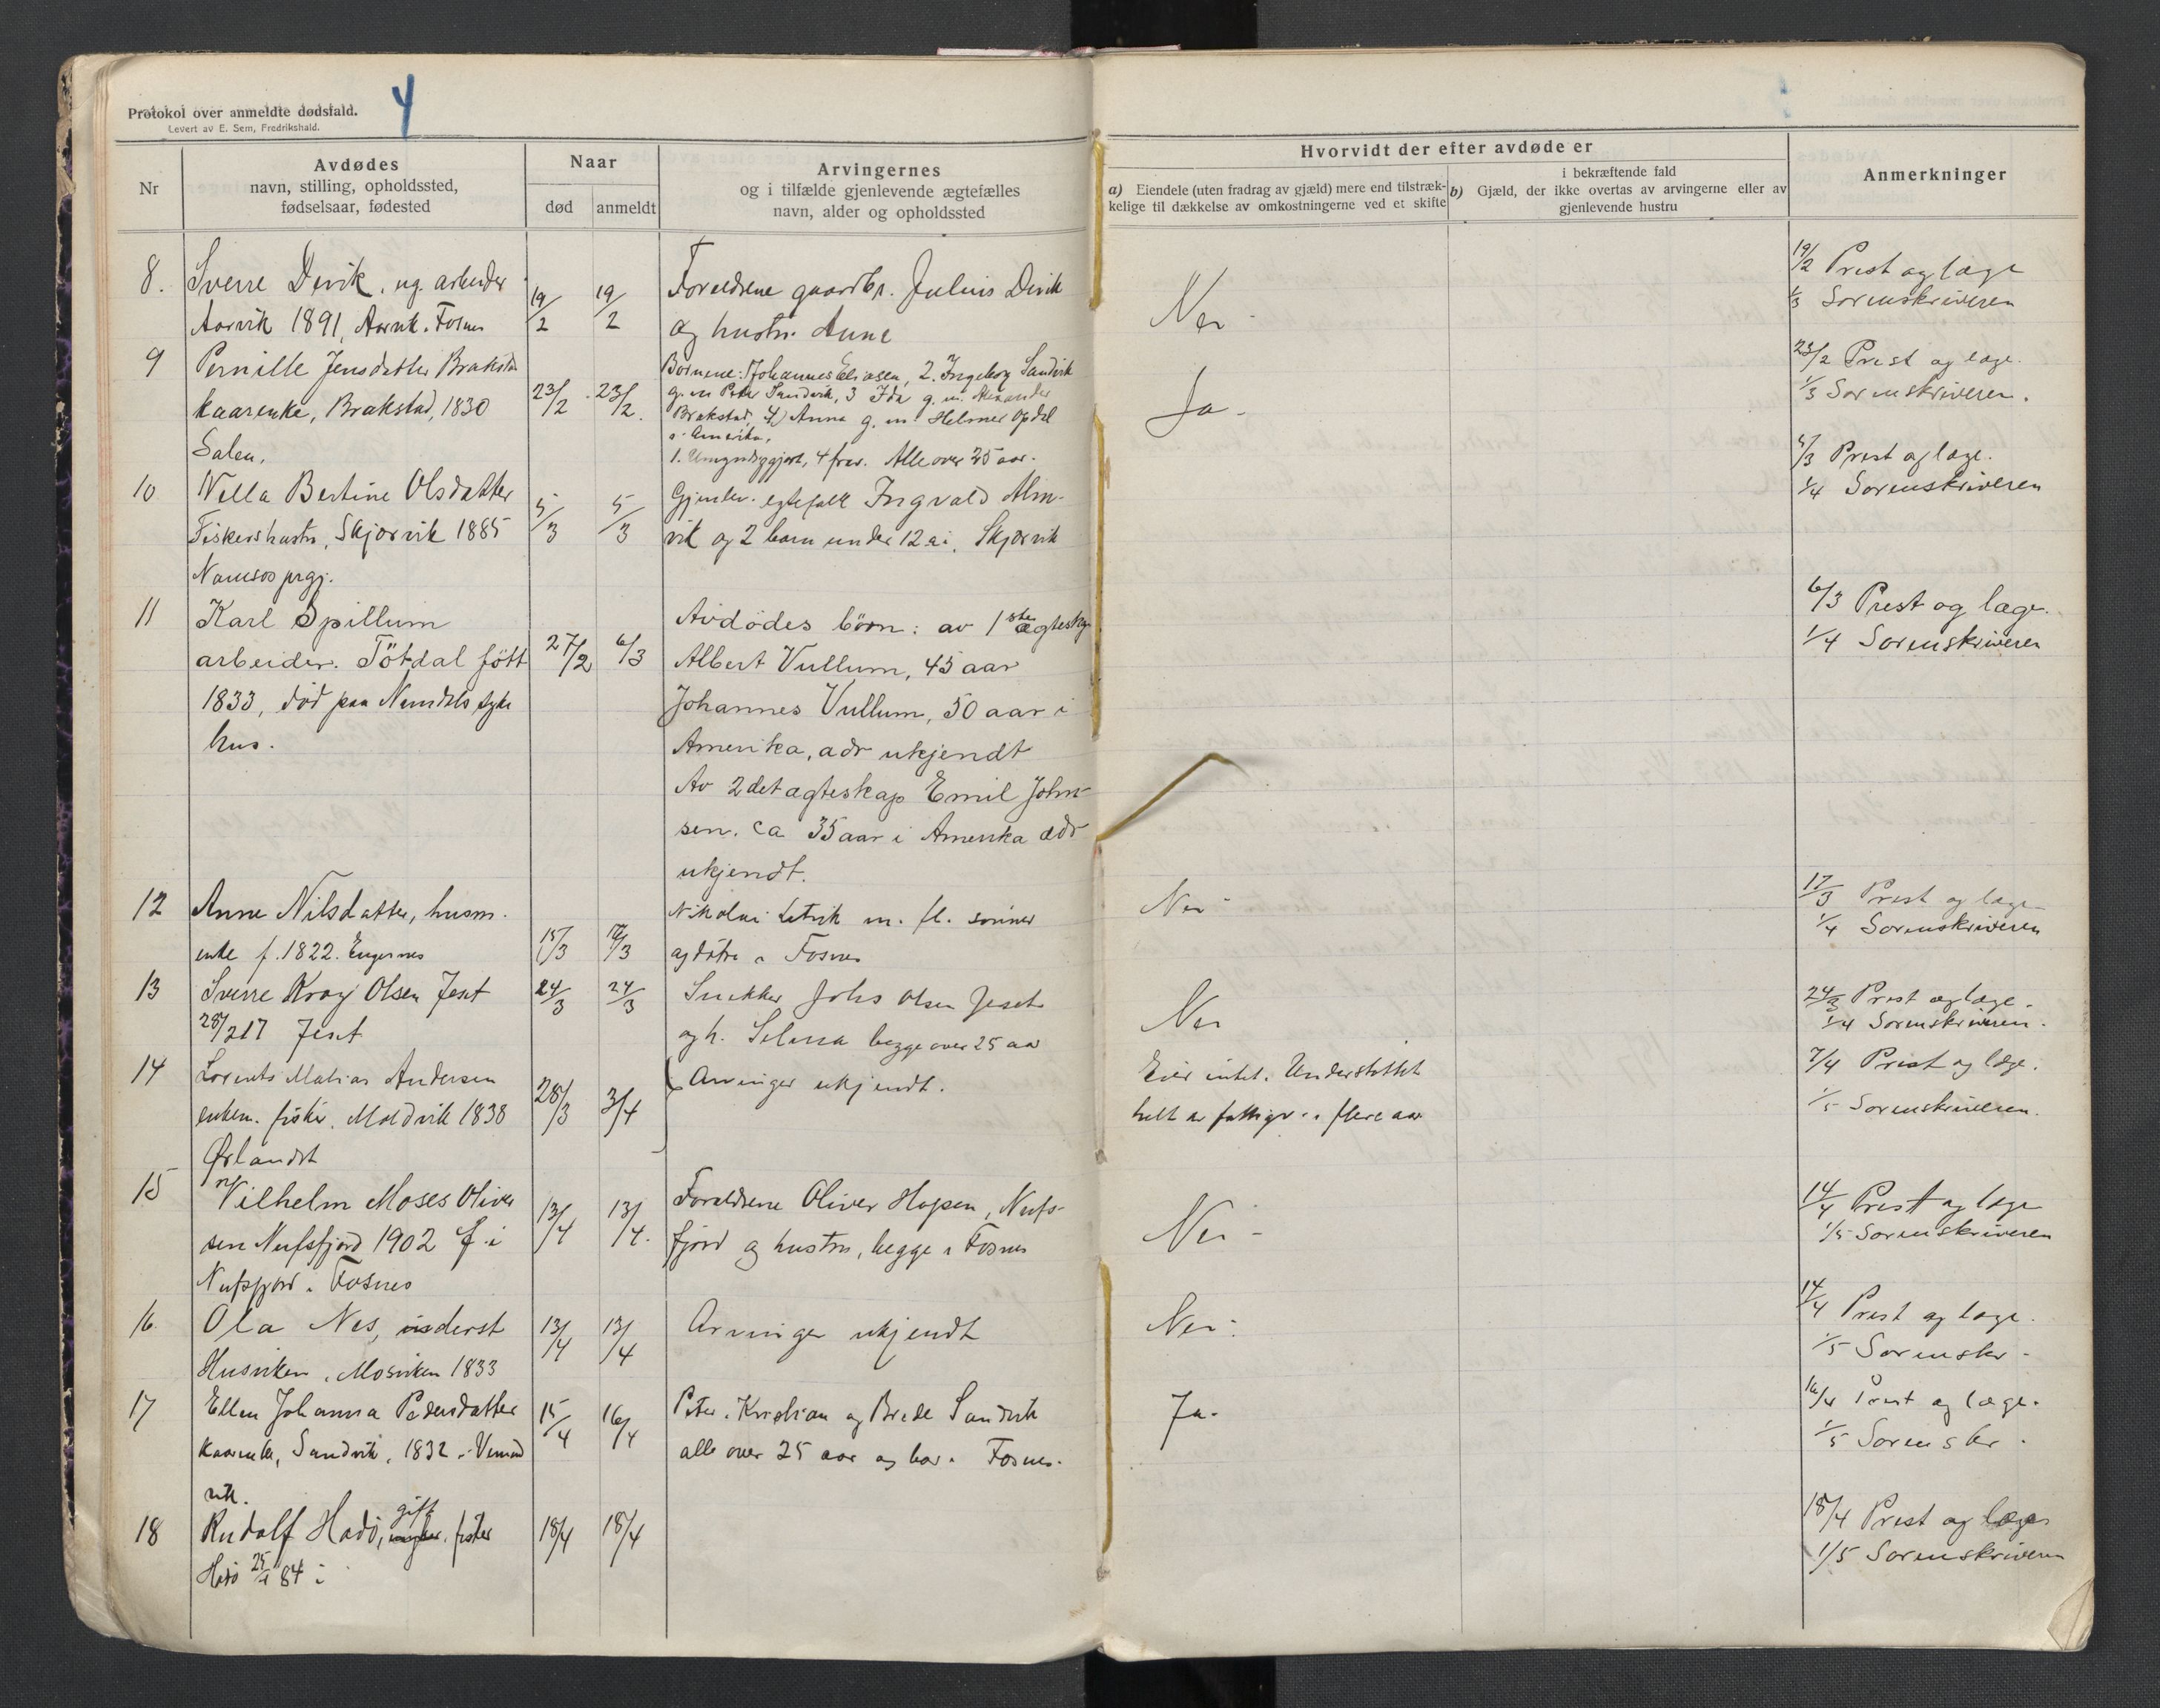 Protokol over anmeldte dødsfald.
Levert av E. Sem, Fredrikshald.
4
Nr
Avdødes
navn, stilling, opholdssted,
fødselsaar, fødested
Naar
død
anmeldt
Arvingernes
og i tilfælde gjenlevende ægtefælles
navn, alder og opholdssted
Hvorvidt der efter avdøde er
a) Eiendele (uten fradrag av gjæld) mere end tilstræk-
kelige til dækkelse av omkostningerne ved et skifte
i bekræftende fald
b) Gjæld, der ikke overtas av arvingerne eller av
gjenlevende hustru
Anmerkninger
8. Sverre Devik, ug. arbeider
Aarvik 1891, Aarvik. Fosnes
19/2
19/2
Forældrene gaardbr. Julius Devik
og hustr. Anne
Nei
19/2 Prest og læge
1/3 Sorenskriveren
9 Pernille Jensdatter Brakstad
kaarenke, Brakstad, 1830
Salen.
23/2
23/2.
Børnene: Johannes Eliasen, 2. Ingeborg Sandvik
g. m Peter Sandvik, 3 Ida g. m. Alexander
Brakstad, 4) Anna g. m Helmer Opdal
i Amerika.
1. Umyndiggjort, 4 frav. Alle over 25 aar.
Ja-
23/2 Prest og læge.
1/3 Sorenskriveren.
10 Nella Bertine Olsdatter
Fiskershustr, Skjærvik 1885
Namsos prgj.
5/3
5/3
Gjenlev. egtefælle Ingvald Alm-
vik og 2 barn under 12 a i. Skjærvik
5/3 Prest og læge.
1/4 Sorenskriveren
11 Karl Spillum
arbeider. Tötdal født
1833, död paa Namdals syke
hus.
27/2
6/3
Avdødes börn: av 1ste ægtesk
Albert Vullum, 45 aar
Johannes Vullum, 50 aar i
Amerika, adr ukjendt
Av 2det ægteskap Emil John-
sen. ca 35 aar i Amerika adr
ukjendt.
6/3 Prest og læge.
1/4 Sorenskriveren
12 Anne Nilsdatter, husm.
enke f. 1822.
15/3
/3
Nikolai m. fl. sønner
og døtre i Fosnes
Nei-
17/3 Prest og læge
1/4 Sorenskriveren
13 Sverre Olsen
28/217
24/3
24/3
Snekker Johs Olsen
og h. Selma begge over 25 aar
Nei
24/3 Prest og læge.
1/4 Sorenskriveren.
14 Lorents Matias Andersen
enkem. fisker. Moldvik 1838
Ørlandet
28/3
3/4
Arvinger ukjendt.
Eier intet. Understøttet
helt av fattigv. i flere aar
7/4 Prest og læge.
1/5 Sorenskriveren.
15 Vilhelm Moses Oliver
sen Nufsfjord 1902 f. i
Nufsfjord. Fosnes
13/4
13/4.
Forældrene Oliver Hopen, Nufs-
fjord og hustru, begge i Fosnes
Nei-
14/4 Prest og læge
1/5 Sorenskriveren
16 Ola Nes, inderst
Husviken, Mosviken 1833
13/4
13/4
Arvinger ukjendt
Nei-
14/4 Prest og læge.
1/5 Sorenskr-
17 Ellen Johanna Pedersdatter
kaarenke, Sandvik, 1832 i Vemund
vik.
15/4
16/4
Peter, Kristian og Brede Sandvik
alle over 25 aar og bor i Fosnes.
Ja-
16/4 Prest og læge.
1/5 Sorenskr.
18 Rudolf Hadø, gift fisker
Hadø 84 i
18/4
18/4
18/4 Prest og læge
1/5 Sorenskriveren